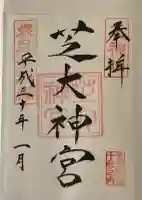 奉拝
芝大神宮
平成三十年一月